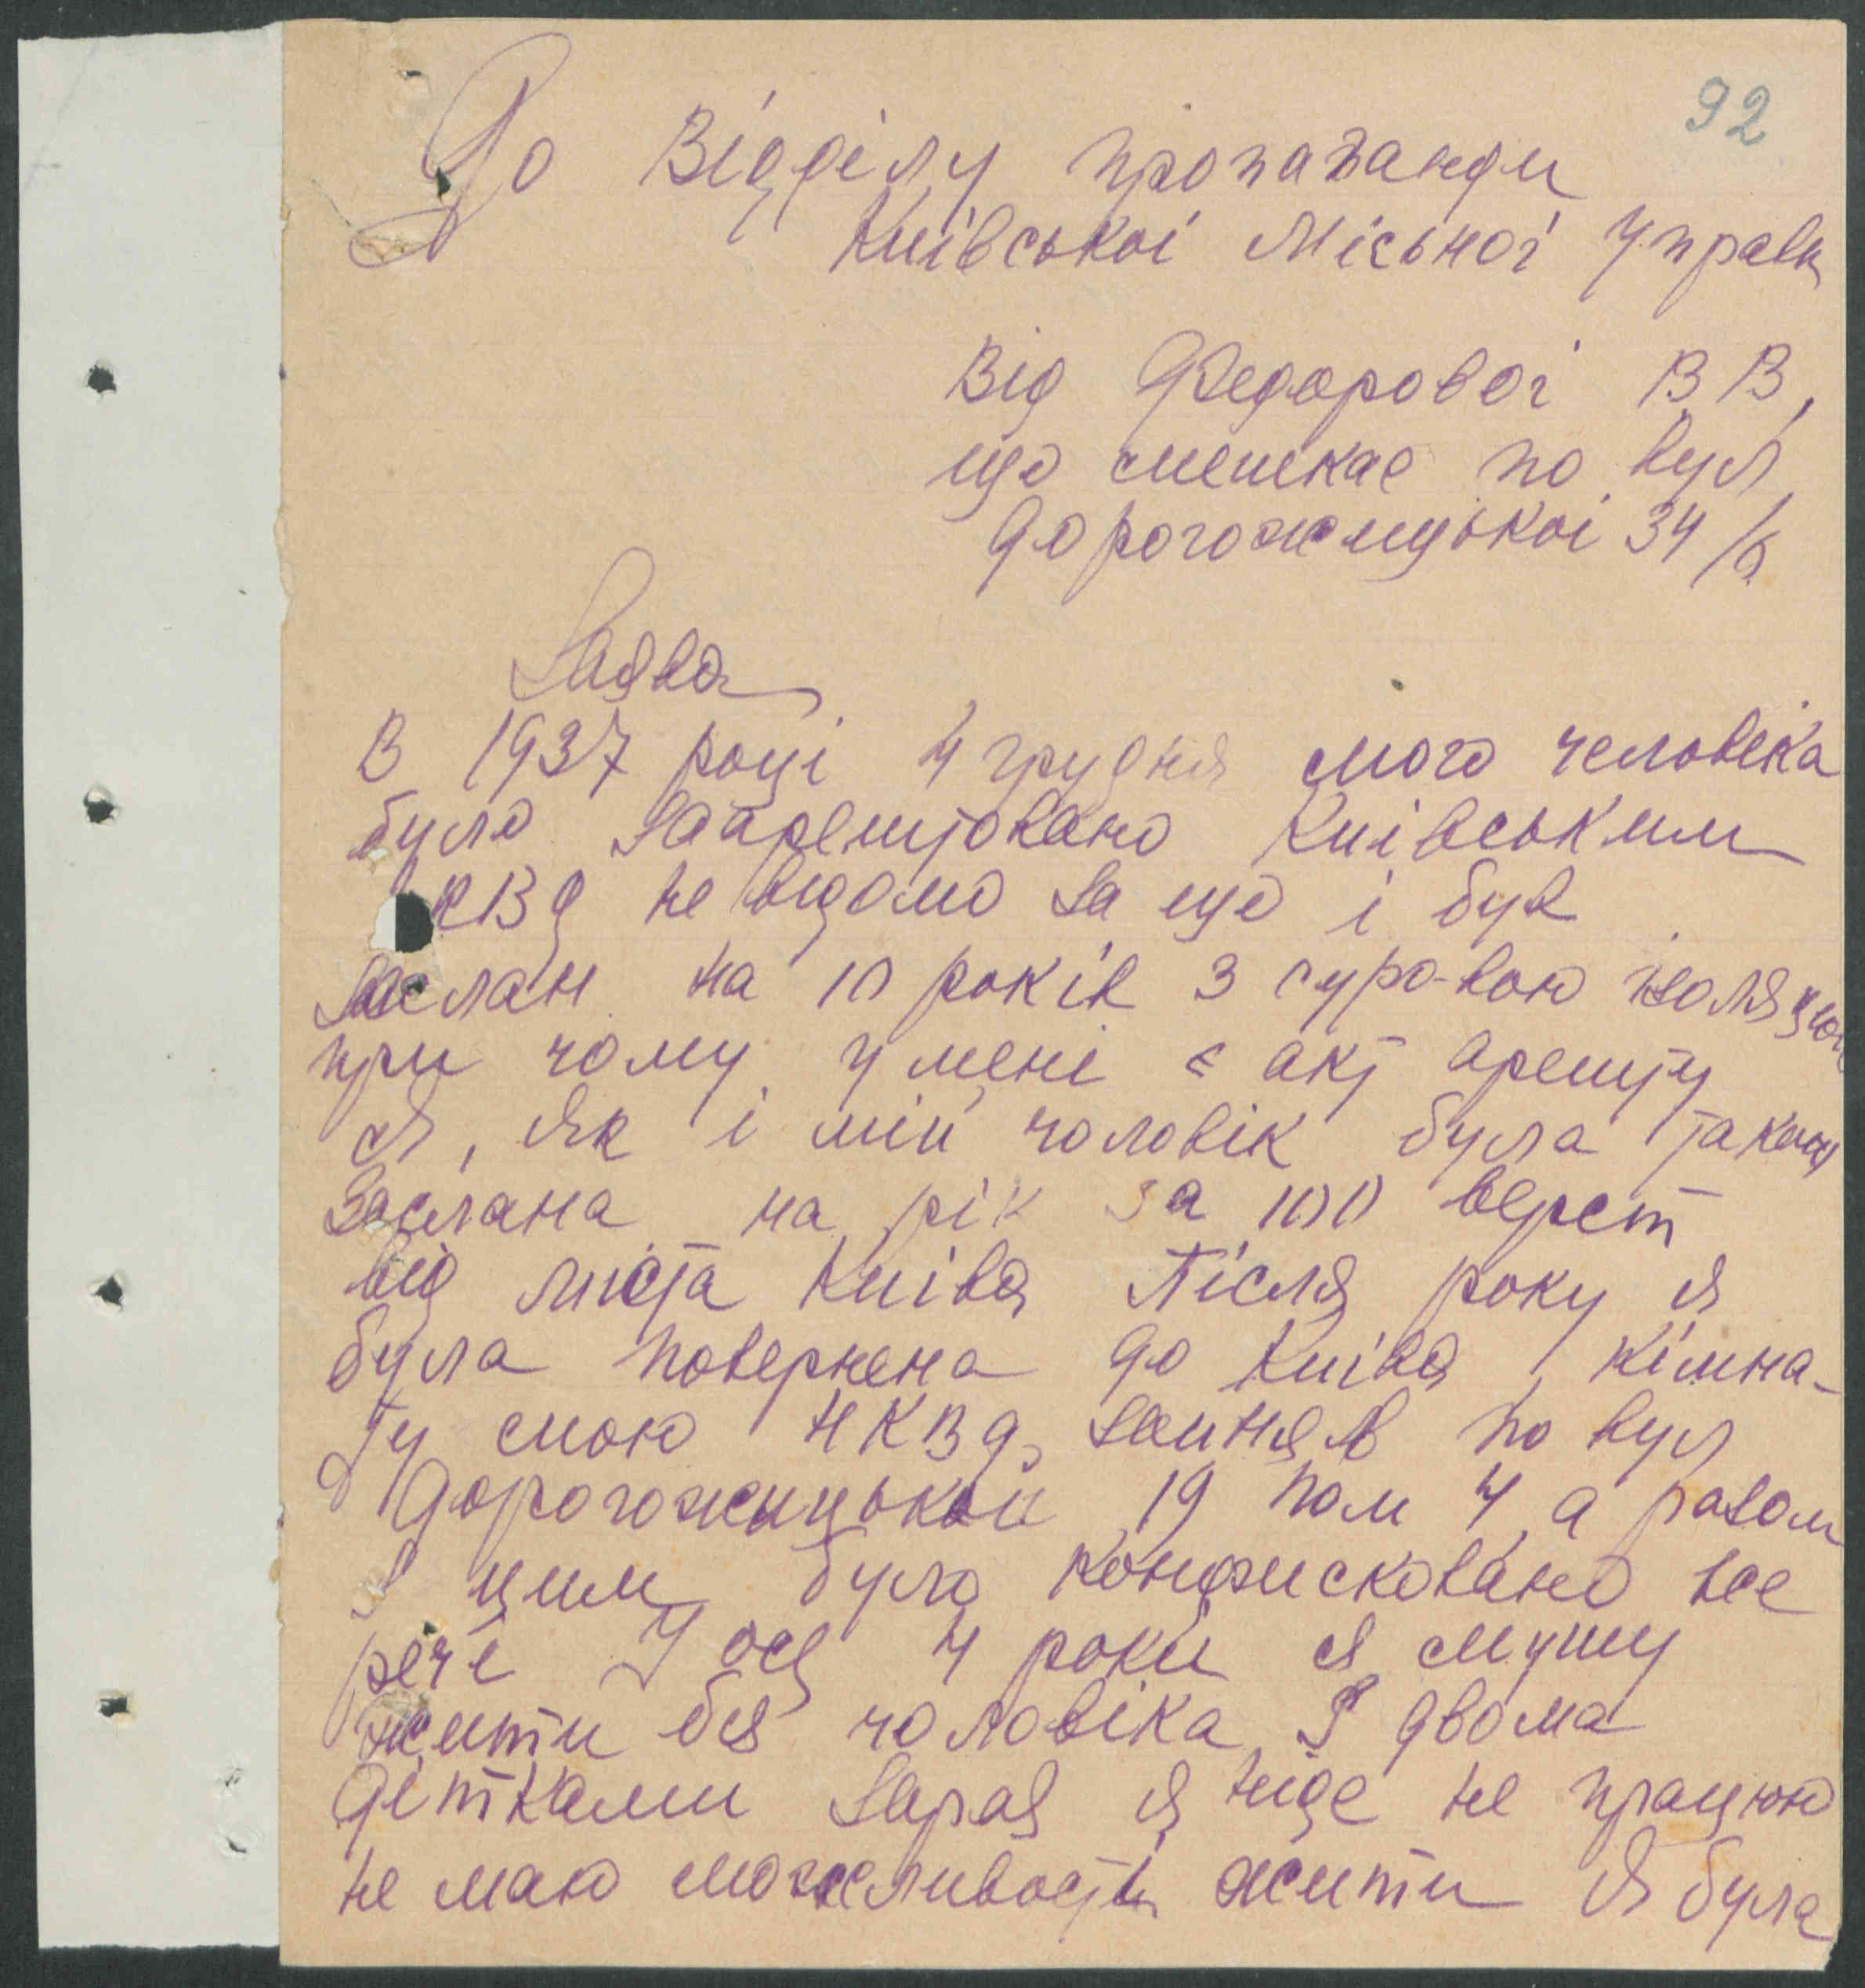 92
До Відділу пропаганди
Київської Міської Управи
Від Федорової В В,
що мешкає по вул
Дорогожицької 34/6
Заява
В 1937 році 4 грудня мого человіка
було заарештовано Київським
НКВД не відомо за що і був
заслан на 10 років з суровою ізоляцією
при чому у мені є акт арешту
Я, як і мій чоловік була також
заслана на рік за 100 верст
від міста Київа Після року я
була повернена до Київа, кімна-
ту мою НКВД зайняв по вул
Дорогожицькой 19 пом 4, а разом
з цим було конфисковано все
речі І ось 4 роки я мушу
жити без чоловіка з двома
дітками Зараз я ніде не працюю
не маю можливость жити Я була